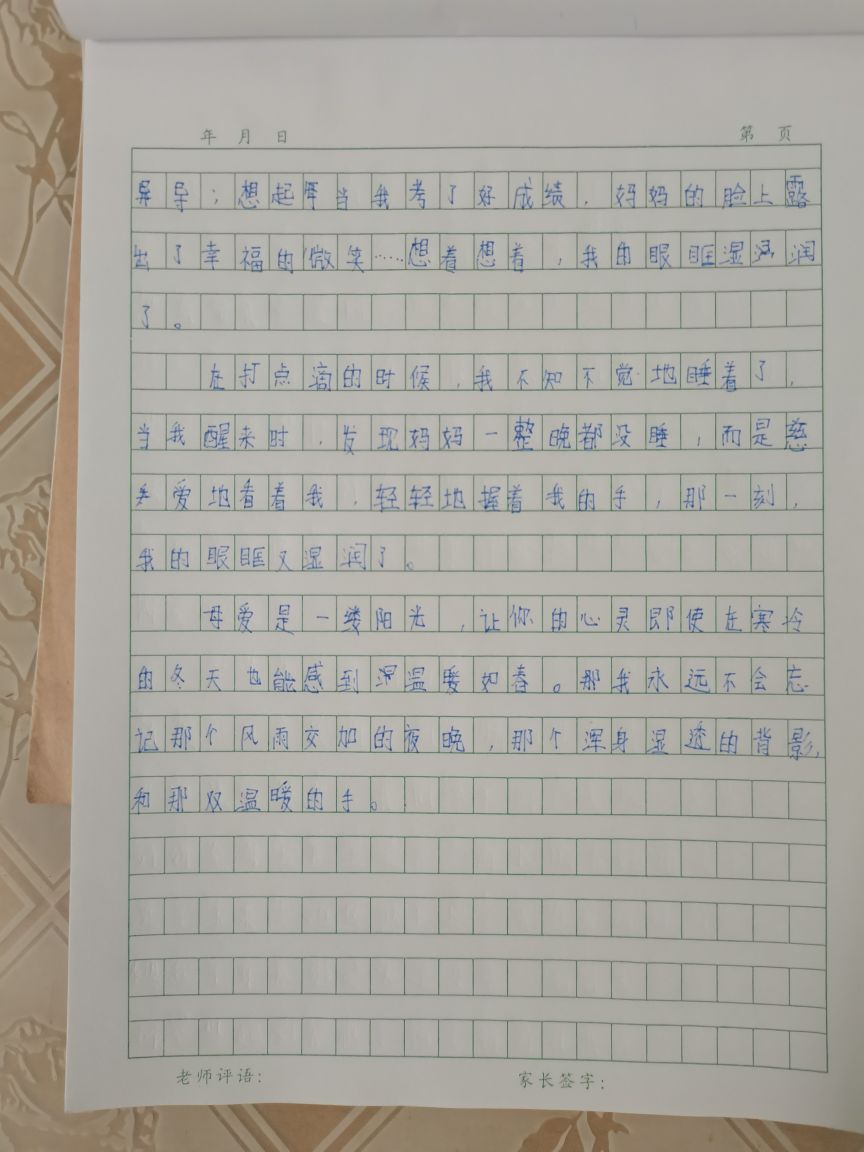 年 月 日 第 页
导；想起每当我考了好成绩，妈妈的脸上露
出了幸福的微笑……想着想着，我的眼眶湿润
了。
在打点滴的时候，我不知不觉地睡着了，
当我醒来时，发现妈妈一整晚都没睡，而是慈
爱地看着我，轻轻地握着我的手，那一刻，
我的眼眶又湿润了。
母爱是一缕阳光，让你的心灵即使在寒冷
的冬天也能感到温暖如春。那我永远不会忘
记那个风雨交加的夜晚，那个浑身湿透的背影，
和那双温暖的手。
老师评语： 家长签字：